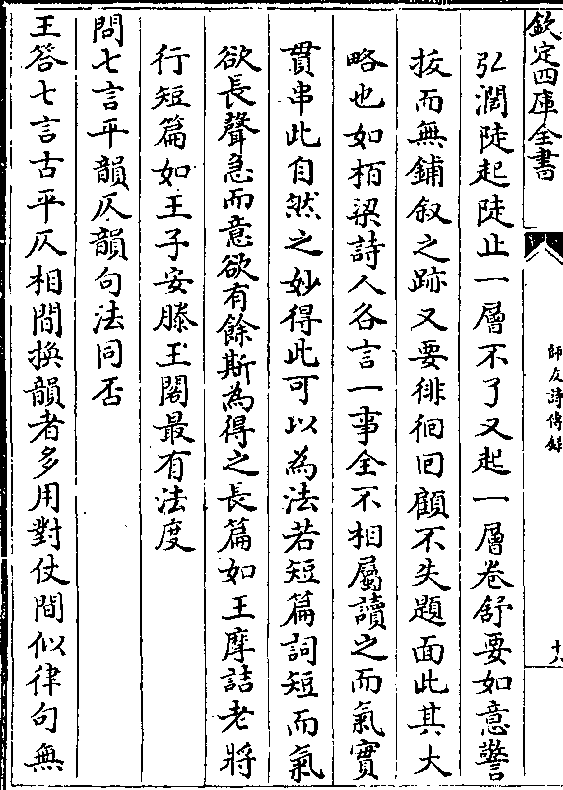 欽定四庫全書
師友詩傳錄
十六
弘濶陡起陡止一層不了又起一層卷舒要如意警
拔而無鋪叙之跡又要徘徊回顧不失題面此其大
略也如栢梁詩人各言一事全不相屬讀之而氣實
貫串此自然之妙得此可以為法若短篇詞短而氣
欲長聲急而意欲有餘斯為得之長篇如王摩詰老將
行短篇如王子安滕王閣最有法度
問七言平韻仄韻句法同否
王答七言古平仄相間換韻者多用對仗間似律句無